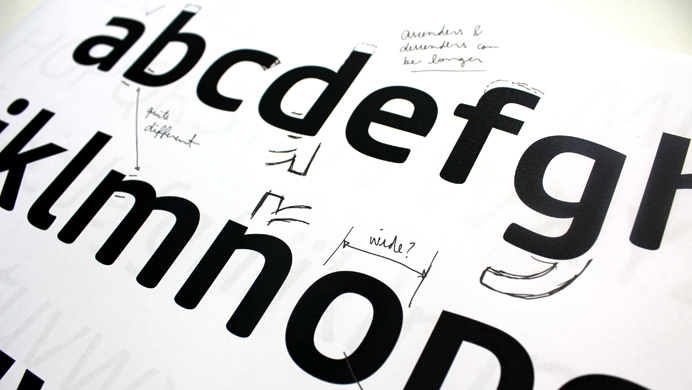 abcdefgh
ascenders &
descenders can
be longer
quite
different
jklmnop
wide?